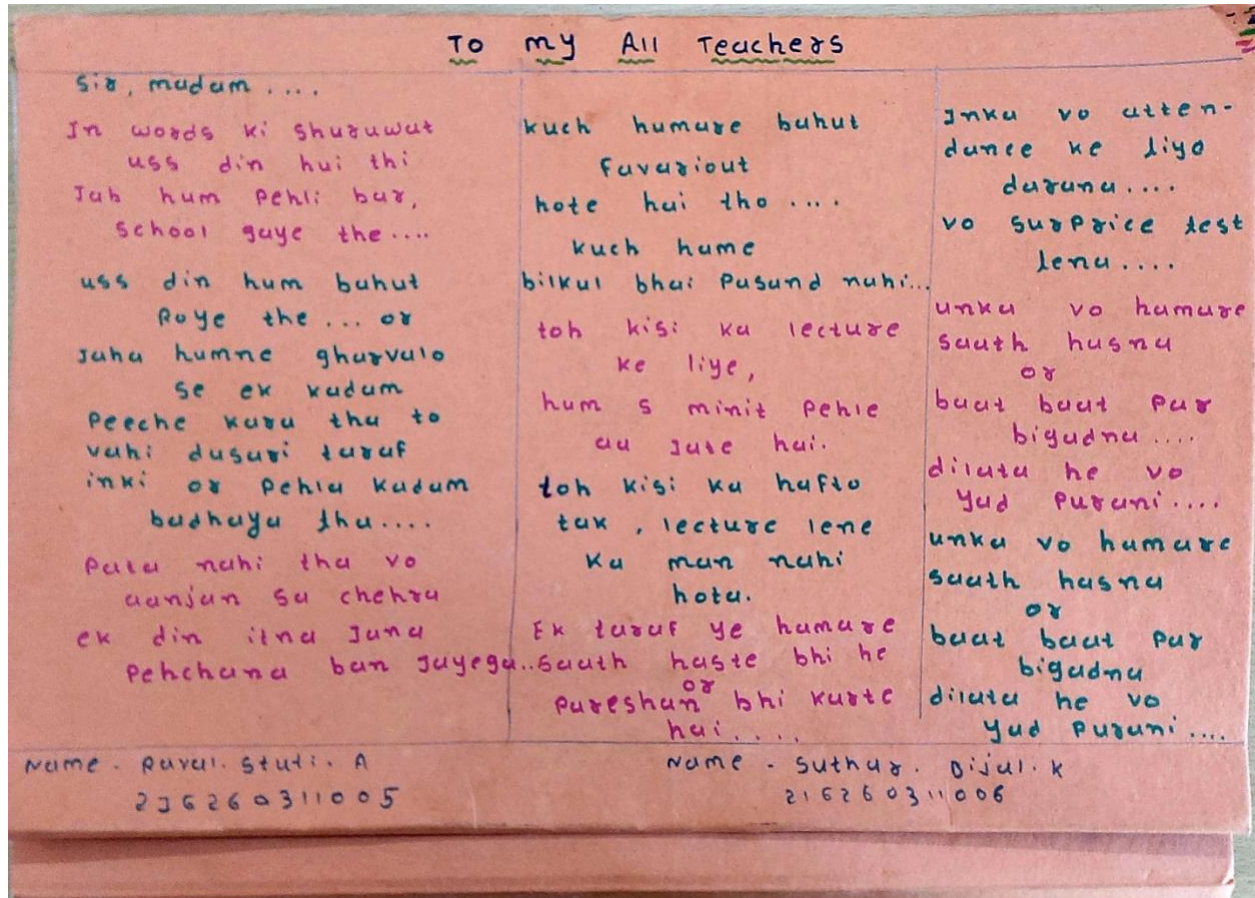 To my All Teachers
Sir, madam ....
In words ki shuruwat
uss din hui thi
Jab hum pehli bar,
school gaye the....
uss din hum bahut
Roye the ... or
Jaha humne gharvalo
se ek kadam
peeche kara tha to
vahi dusari taraf
inki or pehla kadam
badhaya tha....
Pata nahi tha vo
aanjan sa chehra
ek din itna Jana
pehchana ban Jayega..
kuch humare bahut
favariout
hote hai tho ....
kuch hame
bilkul bhai pasand nahi...
toh kisi ka lecture
ke liye,
hum 5 minit pehle
aa Jate hai.
toh kisi ka hafto
tak, lecture lene
ka man nahi
hota.
Ek taraf ye hamare
saath haste bhi he
or
pareshan bhi karte
hai....
Inka vo atten-
dance ke liye
darana....
vo surprice test
lena....
unka vo hamare
saath hasna
or
baat baat par
bigadna ....
dilata he vo
yad purani....
unka vo hamare
saath hasna
or
baat baat par
bigadna
dilata he vo
yad purani....
Name - Raval. Stuti. A
Name - Suthar. Bijal. K
216260311005
216260311006